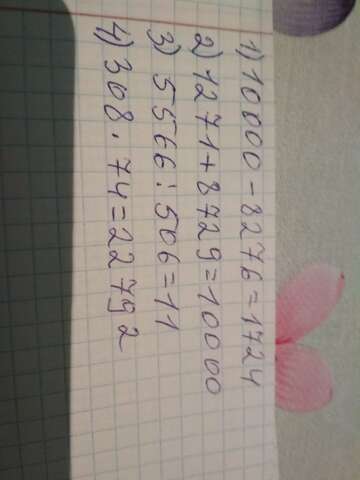 1) 10000 - 8276 = 1724
2) 1271 + 8729 = 10000
3) 5566 : 506 = 11
4) 308 · 74 = 22792